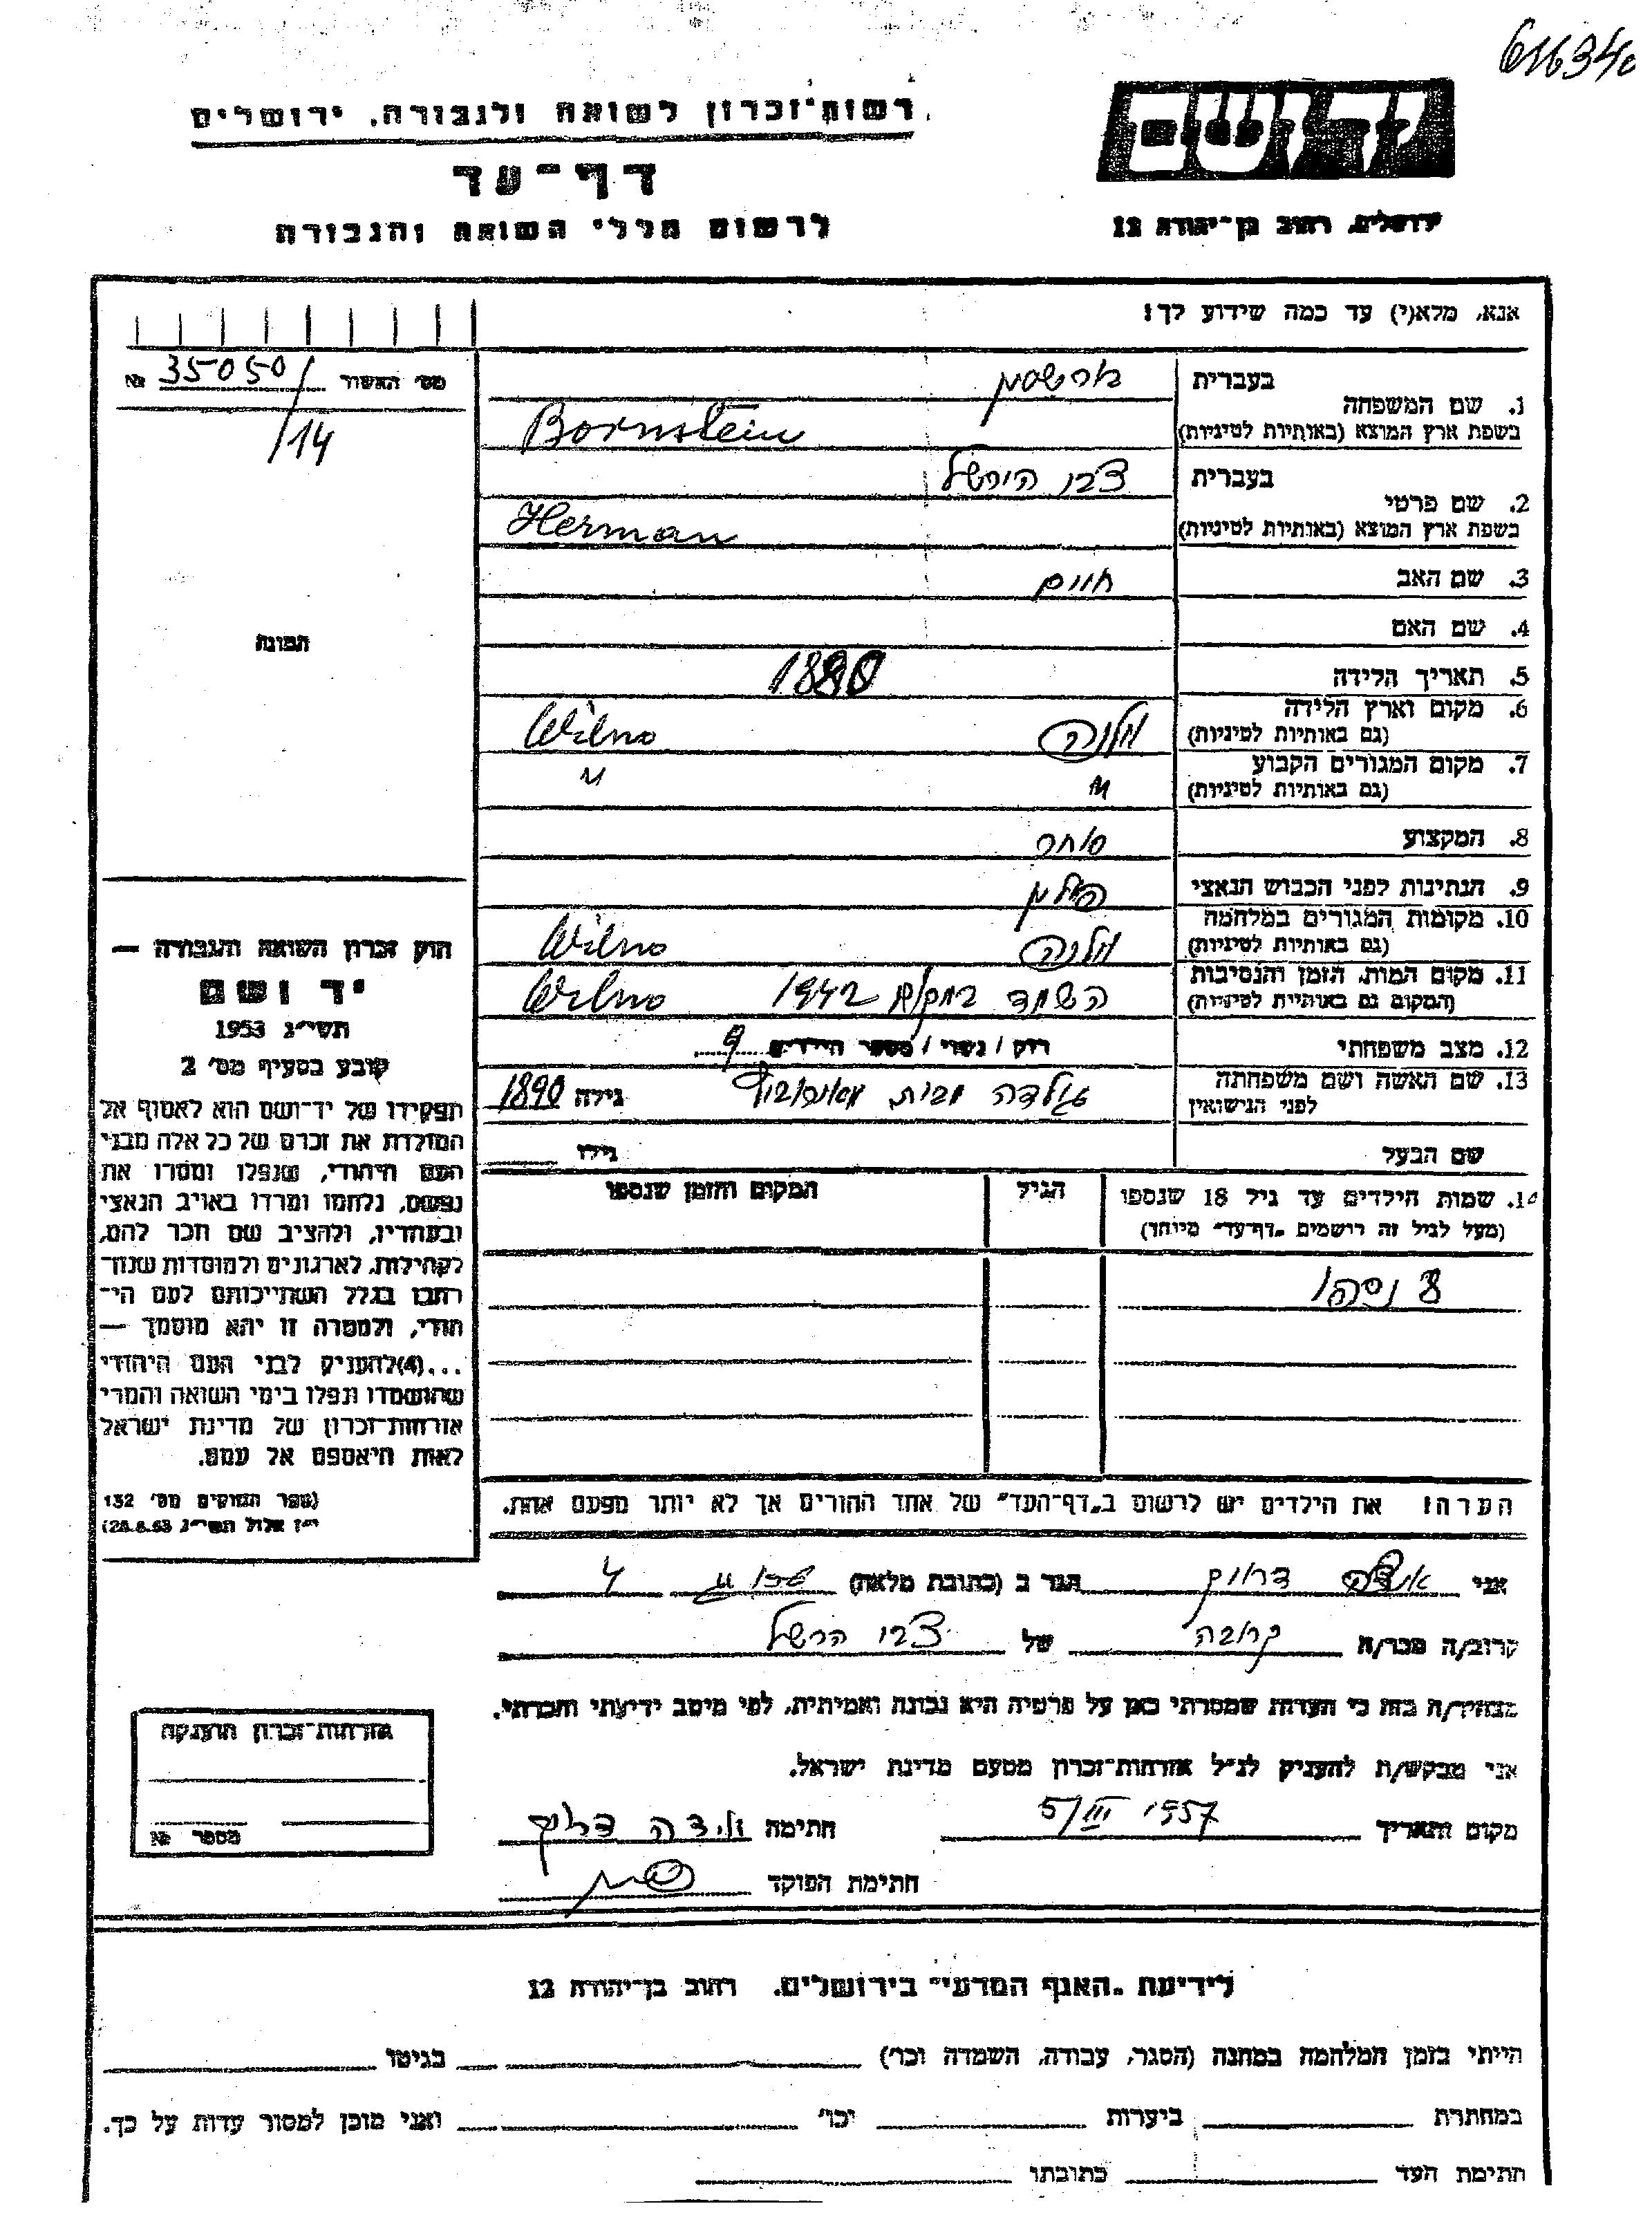 616340
רשות־זכרון לשואה ולגבורה, ירושלים
יד ושם
דף־עד
לרשום חללי השואה והגבורה
ירושלים, רחוב בן־יהודה 12
אנא, מלא(י) עד כמה שידוע לך!
מס׳ האשור 35050/ №
/14
בעברית
1. שם המשפחה
בשפת ארץ המוצא (באותיות לטיניות) Bornstein
בעברית צבי הירשל
2. שם פרטי
בשפת ארץ המוצא (באותיות לטיניות) Herman
3. שם האב חיים
4. שם האם
תמונה
5. תאריך הלידה 1880
6. מקום וארץ הלידה
(גם באותיות לטיניות) וילנה Wilno
7. מקום המגורים הקבוע
(גם באותיות לטיניות) " "
8. המקצוע סוחר
9. הנתינות לפני הכבוש הנאצי פולין
10. מקומות המגורים במלחמה
(גם באותיות לטיניות) וילנה Wilno
11. מקום המות, הזמן והנסיבות
(המקום גם באותיות לטיניות) הושמד במקום 1942 Wilno
12. מצב משפחתי רוק / נשוי / מספר הילדים 9
13. שם האשה ושם משפחתה
לפני הנישואין גולדה מבית גילה 1890
שם הבעל גילו
14. שמות הילדים עד גיל 18 שנספו הגיל המקום והזמן שנספו
(מעל לגיל זה רושמים "דף־עד" מיוחד)
8 נספו
הערה! את הילדים יש לרשום ב"דף־העד" של אחד ההורים אך לא יותר מפעם אחת.
חוק זכרון השואה והגבורה —
יד ושם
תשי״ג 1953
קובע בסעיף מס׳ 2
תפקידו של יד־ושם הוא לאסוף אל
המולדת את זכרם של כל אלה מבני
העם היהודי, שנפלו ומסרו את
נפשם, נלחמו ומרדו באויב הנאצי
ובעוזריו, ולהציב שם וזכר להם,
לקהילות, לארגונים ולמוסדות שנח־
רבו בגלל השתייכותם לעם הי־
הודי, ולמטרה זו יהא מוסמך —
...(4)להעניק לבני העם היהודי
שהושמדו ונפלו בימי השואה והמרי
אזרחות־זכרון של מדינת ישראל
לאות היאספם אל עמם.
(ספר החוקים מס׳ 132
י״ז אלול תשי״ג 28.8.53)
אני הגר ב (כתובת מלאה) 4
קרוב/ה מכר/ה קרובה של צבי הרשל
מצהיר/ה בזה כי העדות שמסרתי כאן על פרטיה היא נכונה ואמיתית, לפי מיטב ידיעתי והכרתי.
אני מבקש/ת להעניק לנ״ל אזרחות־זכרון מטעם מדינת ישראל.
מקום ותאריך 5/III 1957 חתימה
חתימת הפוקד
אזרחות־זכרון הוענקה
מספר №
לידיעת "האגף המדעי" בירושלים, רחוב בן־יהודה 12
הייתי בזמן המלחמה במחנה (הסגר, עבודה, השמדה וכו׳) בגיטו
במחתרת ביערות וכו׳ ואני מוכן למסור עדות על כך.
חתימת העד כתובתו